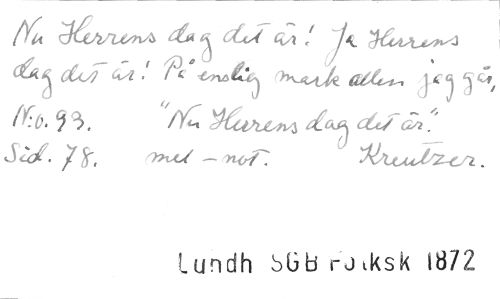 Nu Herrens dag det är! Ja Herrens
dag det är! På enslig mark allen jag går,
N:o. 93. "Nu Herrens dag det är."
Sid. 78. mel-not. Kreutzer.
Lundh SGB Folksk 1872